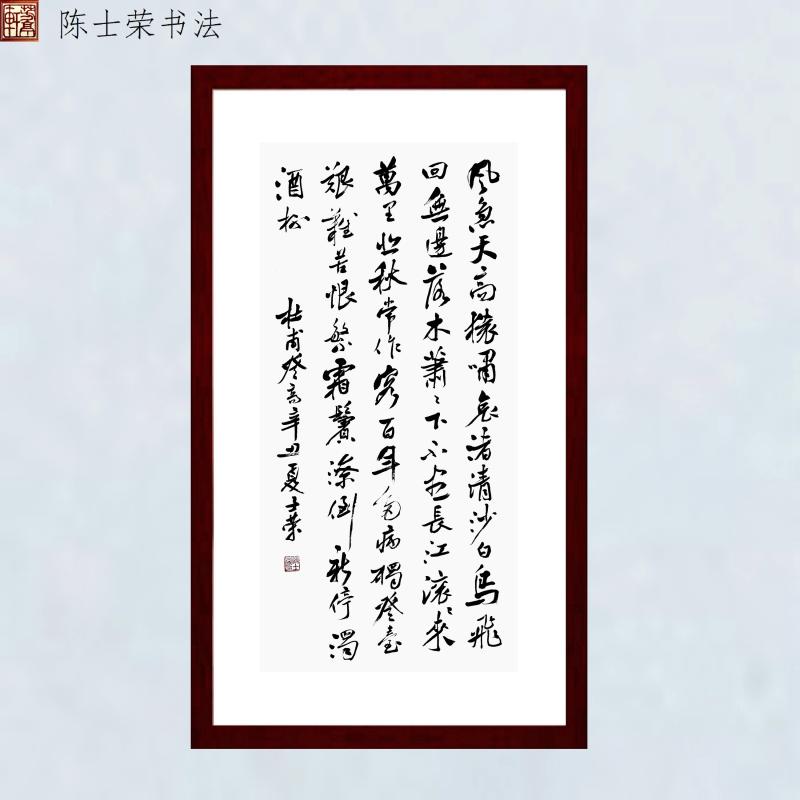 陈士荣书法
風急天高猿嘯哀渚清沙白鳥飛
回無邊落木蕭〻下不盡長江滾〻來
萬里悲秋常作客百年多病獨登臺
艱難苦恨繁霜鬢潦倒新停濁
酒杯
杜甫登高辛丑夏士榮